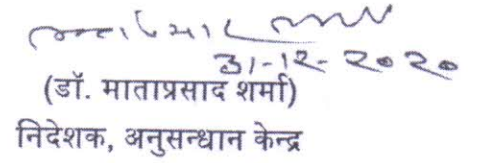 31-12-2020
(डॉ. माताप्रसाद शर्मा)
निदेशक, अनुसन्धान केन्द्र